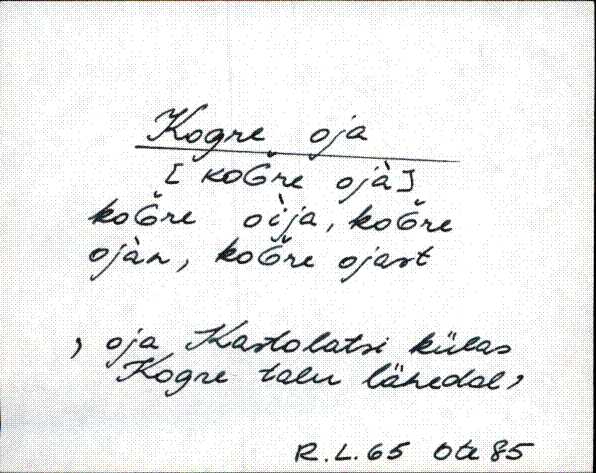 Kogre oja
[ koǦre ojà]
koǦre oìja, koǦre
ojàn, koǦre ojast
, oja Kastolatsi külas
Kogre talu lähedal,
R.L. 65 Ote 85